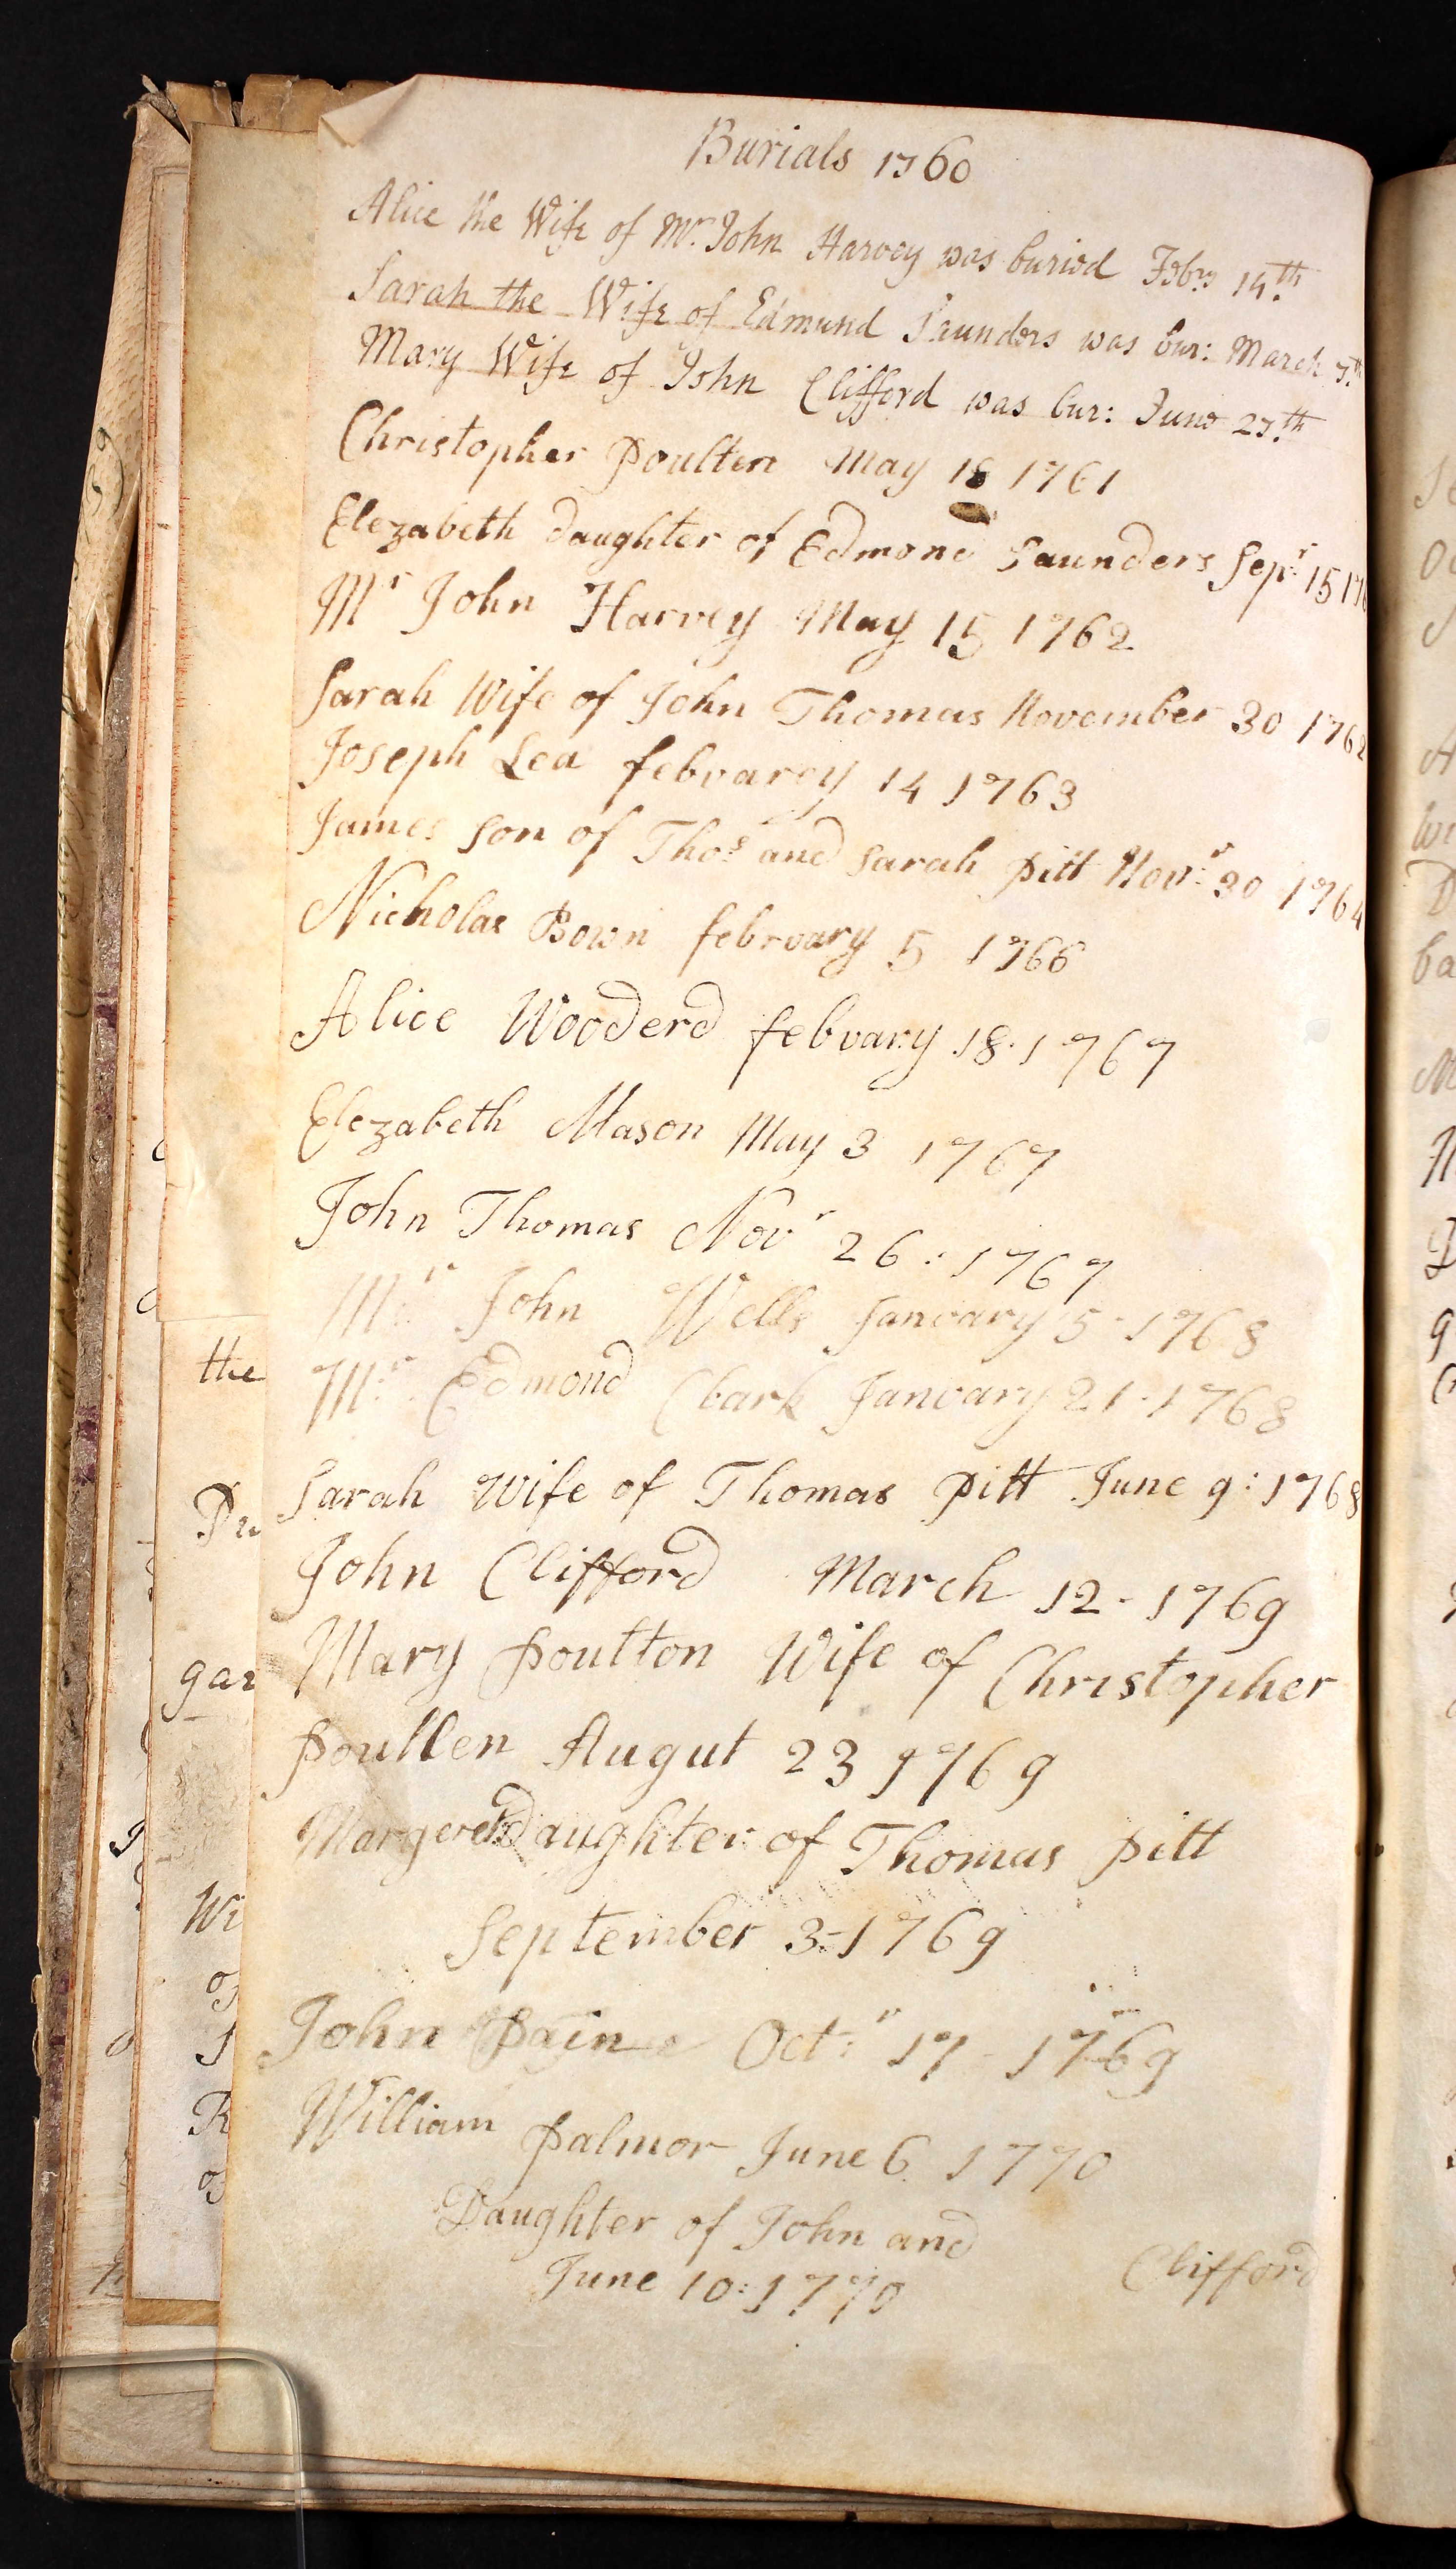 Burials 1760
Alice the Wife of Mr. John Harvey was buried Febry 14th.
Sarah the Wife of Edmund Saunders was bur: March 7th
Mary Wife of John Clifford was bur: June 27th.
Christopher Poulten May 18 1761
Elezabeth Daughter of Edmond Saunders Sepr: 15 17
Mr John Harvey May 15 1762
Sarah Wife of John Thomas November 30 1762
Joseph Lea febvarey 14 1763
James Son of Thos: and Sarah Pitt Novr: 30 1764
Nicholas Bown februvary 5 1766
Alice Wooderd febvary 18 · 1767
Elezabeth Mason May 3 1767
John Thomas Novr 26 : 1767
Mr: John Wells Janvary 5 - 1768
Mr: Edmond Clark Janvary 21 - 1768
Sarah Wife of Thomas Pitt June 9 : 1768
John Clifford March 12 - 1769
Mary Poulton Wife of Christopher
Poullen Augut 23 1769
Daughter of Thomas Pitt
September 3 - 1769
John Paine Octr: 17 - 1769
William Palmor June 6 1770
Daughter of John and Clifford
June 10 : 1770
the
gar
Wi